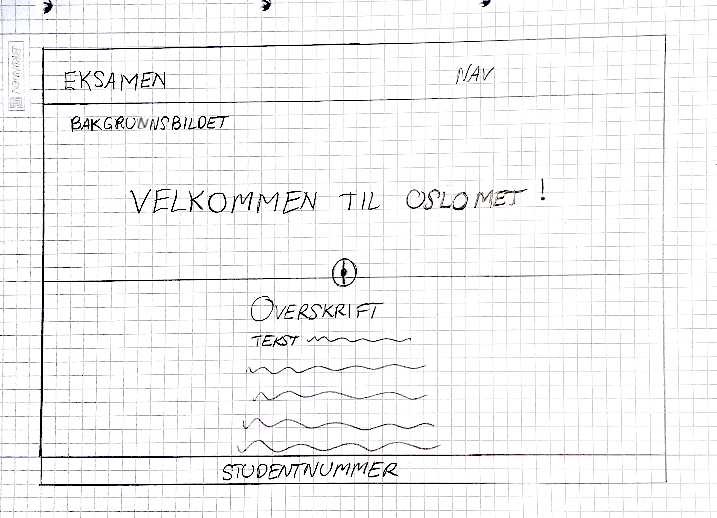 EKSAMEN NAV
BAKGRUNNSBILDET
VELKOMMEN TIL OSLOMET!
OVERSKRIFT
TEKST
STUDENTNUMMER